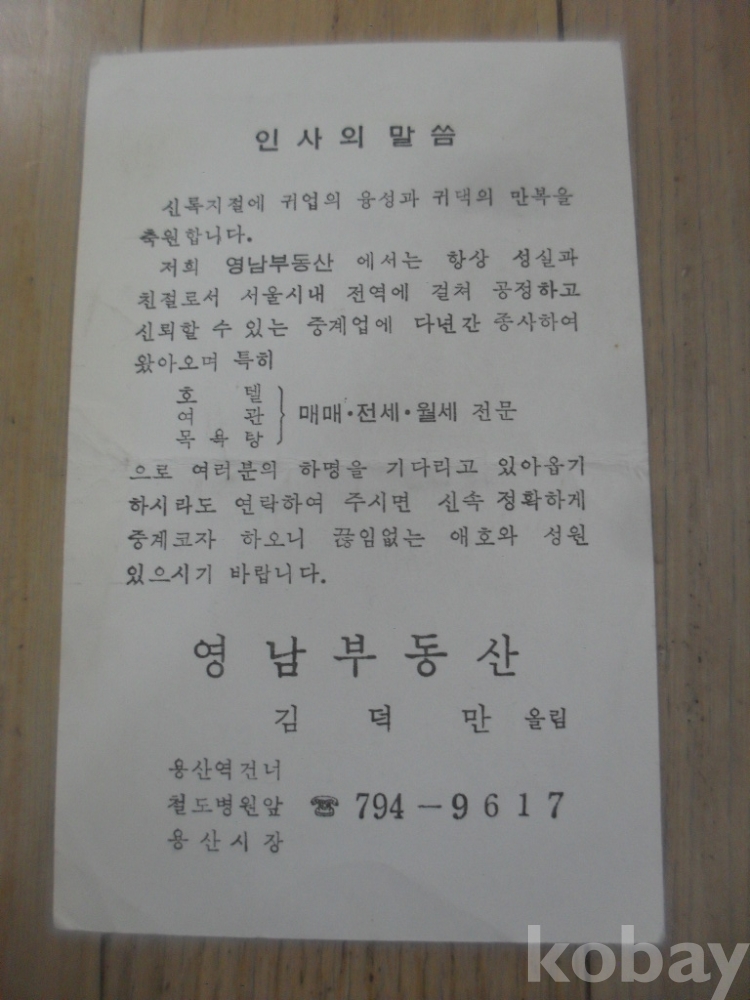 인사의 말씀
신록지절에 귀업의 융성과 귀댁의 만복을
축원합니다.
저희 영남부동산 에서는 항상 성실과
친절로서 서울시내 전역에 걸쳐 공정하고
신뢰할 수 있는 중계업에 다년간 종사하여
왔아오며 특히
호 텔
여 관
목욕탕
매매·전세·월세 전문
으로 여러분의 하명을 기다리고 있아옵기
하시라도 연락하여 주시면 신속 정확하게
중계코자 하오니 끊임없는 애호와 성원
있으시기 바랍니다.
영남부동산
김덕만 올림
용산역건너
철도병원앞 ☎ 794-9617
용산시장
kobay